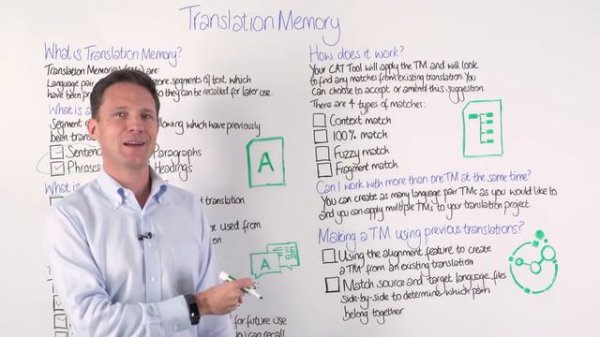 Translation Memory
What is Translation Memory?
Translation are:
Language pair segments of text which
have been so they can be recalled for later use.
What is a
Segment which have previously
been
Paragraphs
Phrases Headings
A
What is
translation
used from
A
for future use
you can recall
How does it work?
Your CAT Tool will apply the TM and will look
to find any matches from existing translation. You
can choose to accept or amend this suggestion
There are 4 types of matches:
Context match
100% match
Fuzzy match
Fragment match
Can I work with more than one TM at the same time?
You can create as many language pair TMs as you would like to
and you can apply multiple TMs to your translation project
Making a TM using previous translations?
Using the alignment feature to create
a TM from an existing translation
Match source and target language files
side-by-side to determine which pairs
belong together